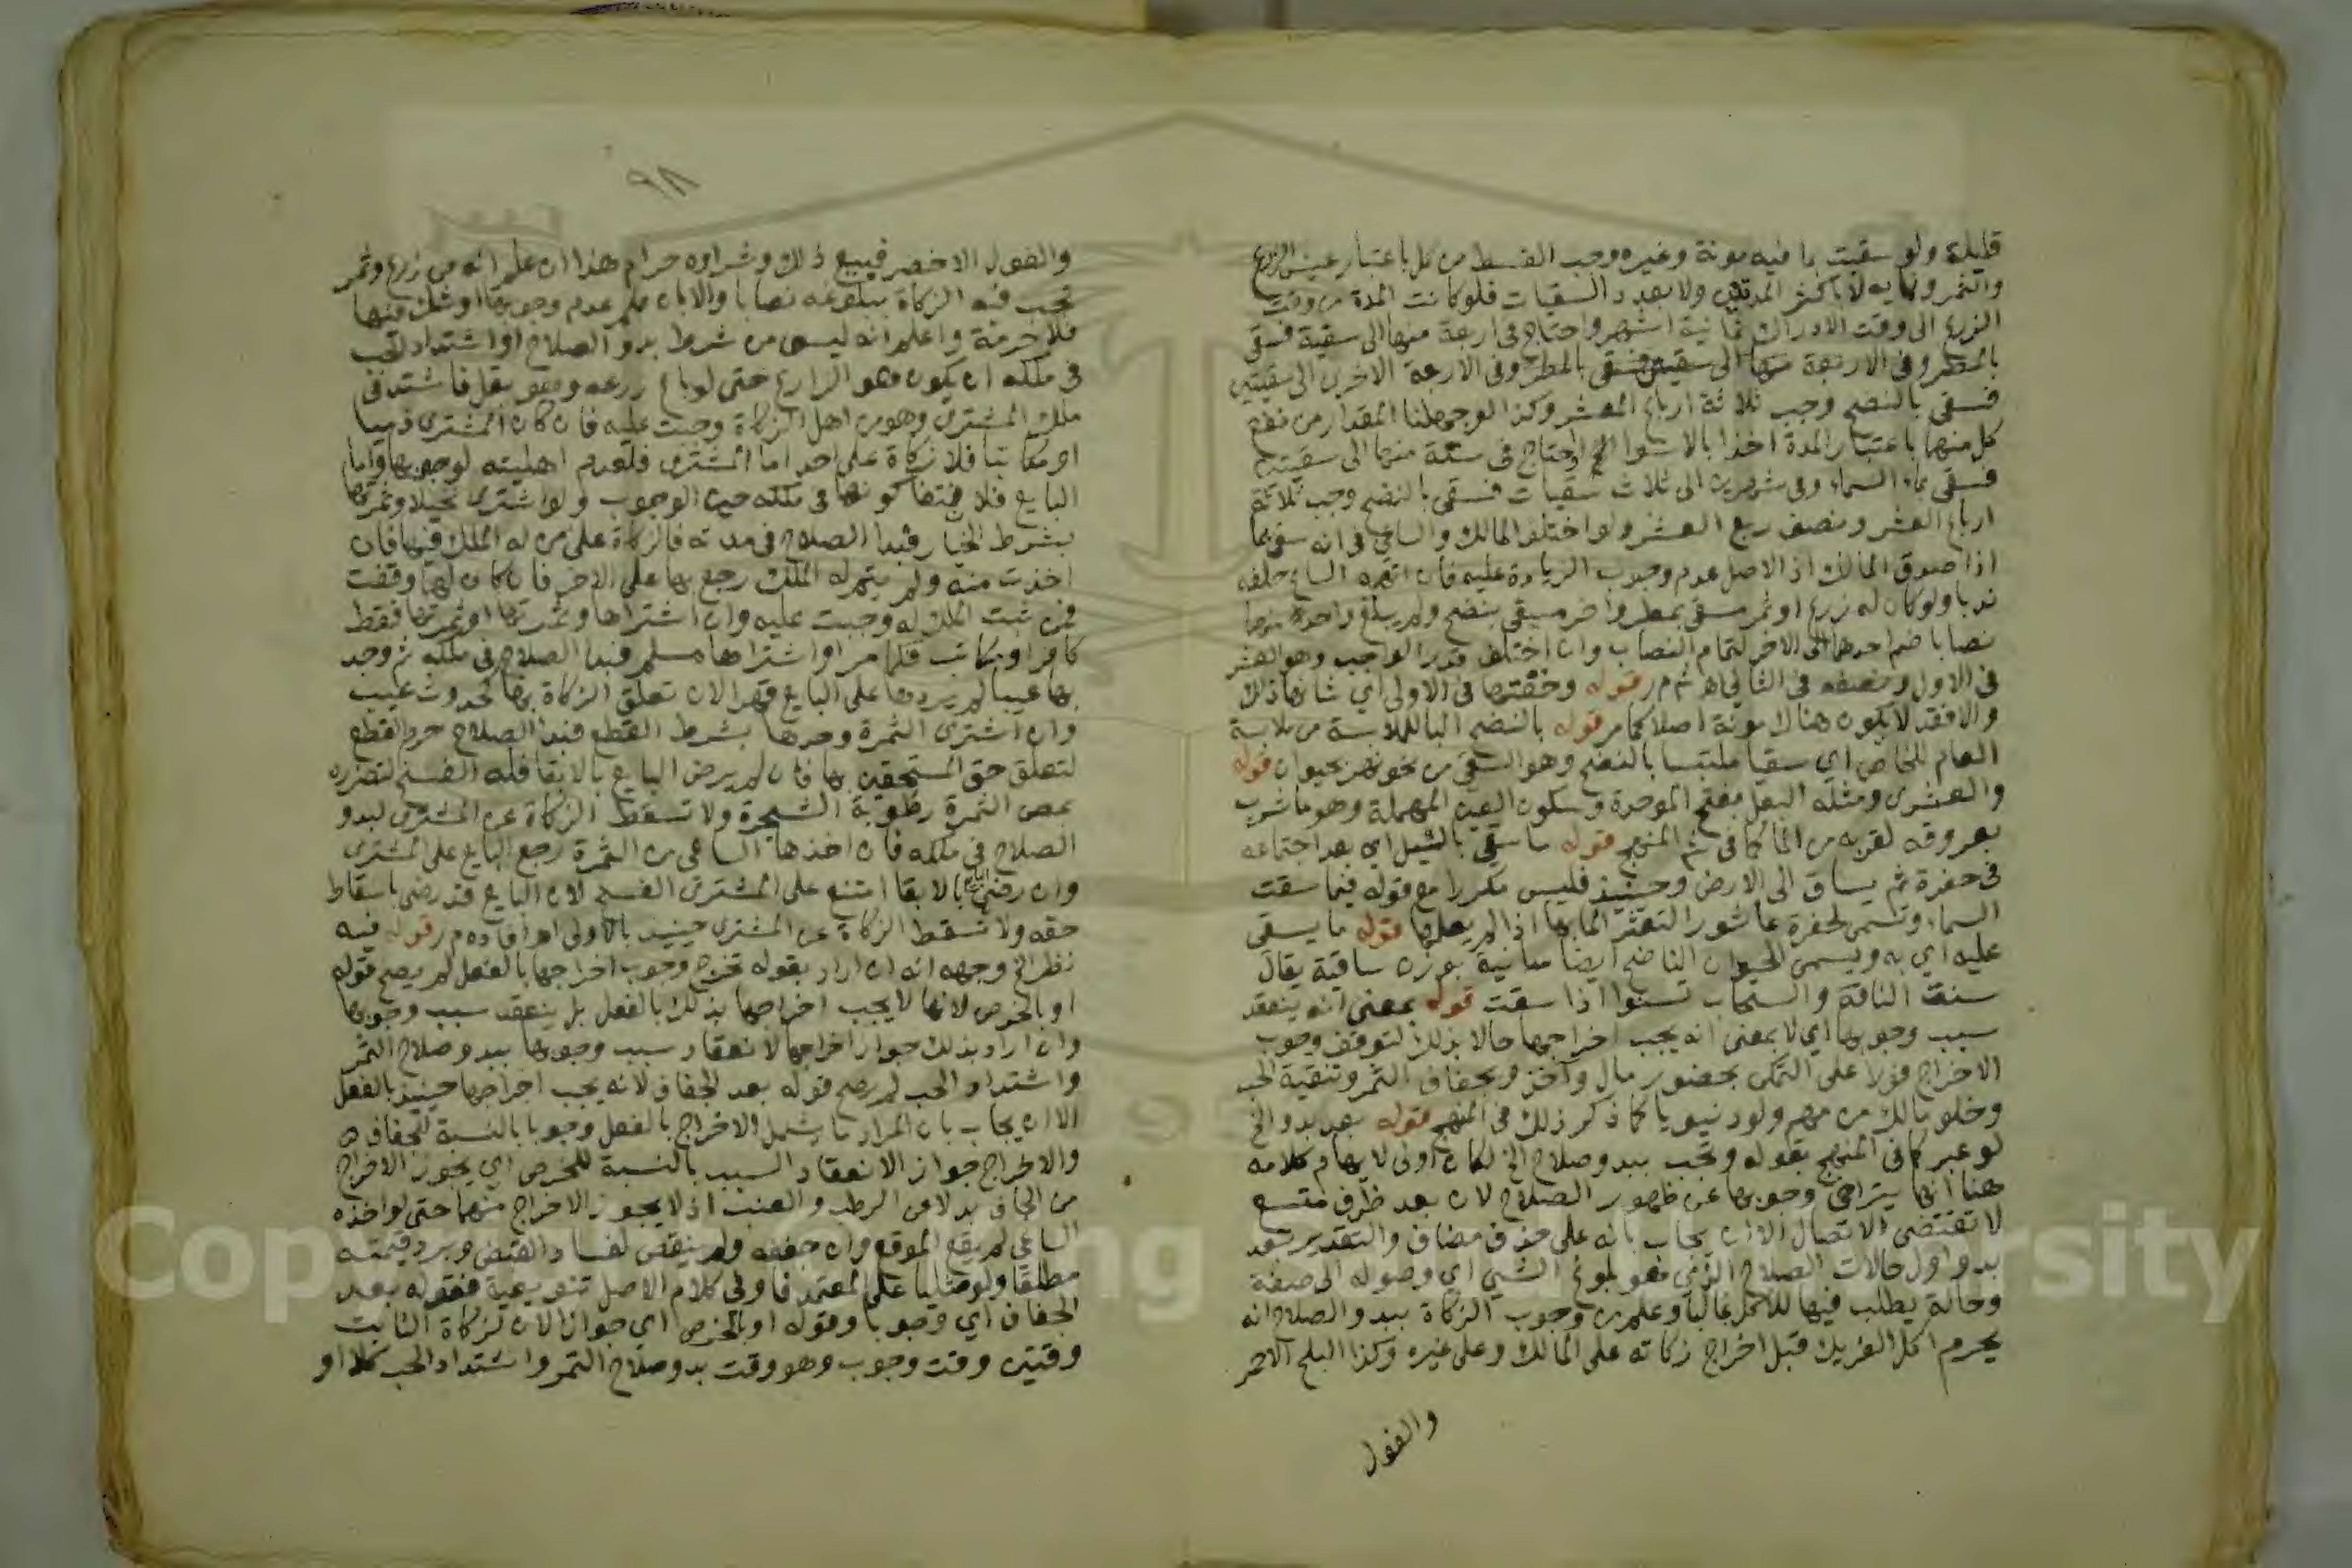 قليلة ولو سقيت بما فيه مونة وغيره وجب القسط من كل باعتبار عيش الزرع
والثمر ونمايه لا باكثر المدتين ولا بعدد السقيات فلو كانت المدة من وقت
الزرع الى وقت الادراك ثمانية اشهر واحتاج فى اربعة منها الى سقية فسقى
بالمطر وفى الاربعة الاخرى الى سقيتين
فسقى بالنضح وجب ثلاثة ارباع العشر وكذا لو جهلنا المقدار من نفع
كل منهما باعتبار المدة اخذا بالاسوا او احتاج فى ستة منها الى سقيتين
فسقى بماء السماء وفى شهرين الى ثلاث سقيات فسقى بالنضح وجب ثلاثة
ارباع العشر ونصف ربع العشر ولو اختلف المالك والساعى فى انه سقى بما
اذا صدق المالك اذ الاصل عدم وجوب الزيادة عليه فان اتهمه الساعى حلفه
ندبا ولو كان له زرع او ثمر مسقى بمطر واخر مسقى بنضح ولم يبلغ واحد منهما
نصابا ضم احدهما الى الاخر لتمام النصاب وان اختلف قدر الواجب وهو العشر
فى الاول ونصفه فى الثانى اه ش م ر قوله وخفتها فى الاولى اي شانها ذلك
والا فقد لا يكون هناك مونة اصلا كما مر قوله بالنضح البا للملابسة من ملابسة
العام للخاص اي سقيا ملتبسا بالنضح وهو السقى من نحو نهر بحيوان قوله
والعشرى ومثله البعل بفتح الموحدة وسكون العين المهملة وهو ما شرب
بعروقه لقربه من الما كما فى ش المنهج قوله ما سقى بالسيل اي بعد اجتماعه
فى حفرة ثم يساق الى الارض وحينيذ فليس مكررا مع قوله فيما سقت
السماء وتسمى الحفرة عاثورا لتعثر المار بها اذا لم يعلمها قوله ما يسقى
عليه اي به ويسمى الحيوان الناضح ايضا سانية بوزن ساقية يقال
سنت الناقة والسحاب تسنوا اذا سقت قوله بمعنى انه ينعقد
سبب وجوبها اي لا بمعنى انه يجب اخراجها حالا بذلك لتوقف وجوب
الاخراج فورا على التمكن بحضور مال واخذ وبجفاف الثمر وتنقية الحب
وخلو مالك من مهم ولو دنيويا كما ذكر ذلك فى المنهج قوله بعد بدو الخ
لو عبر كما فى المنهج بقوله وتجب ببدو صلاح الخ لكان اولى لايهام كلامه
هنا انها يتراخى وجوبها عن ظهور الصلاح لان بعد ظرف متسع
لا تقتضى الاتصال الا ان يجاب بانه على حذف مضاف والتقدير بعد
بدو اول حالات الصلاح الذى هو بلوغ الشي اي وصوله الى صفة
وحالة يطلب فيها للاكل غالبا وعلم من وجوب الزكاة ببدو الصلاح انه
يحرم اكل الفريك قبل اخراج زكاته على المالك وعلى غيره وكذا البلح الاحمر
والفول
٩٨
والفول الاخضر فيبيع ذلك وشراوه حرام هذا ان علم انه من زرع وثمر
تجب فيه الزكاة ببلوغه نصابا والا بان علم عدم وجوبها او شك فيها
فلا حرمة واعلم انه ليس من شرط بدو الصلاح او اشتداد الحب
فى ملكه ان يكون هو الزارع حتى لو باع زرعه وهو بقل فاشتد فى
ملك المشترى وهو من اهل الزكاة وجبت عليه فان كان المشترى ذميا
او مكاتبا فلا زكاة على احد اما المشترى فلعدم اهليته لوجوبها واما
البايع فلانتفا كونها فى ملكه حين الوجوب ولو اشترى نخيلا وثمرتها
بشرط الخيار فبدا الصلاح فى مدته فالزكاة على من له الملك فيها فان
اخذت منه ولم يتم له الملك رجع بها على الاخر فان كان لهما وقفت
فمن ثبت الملك له وجبت عليه وان اشتراها وثمرتها او ثمرتها فقط
كافر او مكاتب فكما مر او اشتراها مسلم فبدا الصلاح فى ملكه ثم وجد
بها عيبا لم يردها على البايع قهرا لان تعلق الزكاة بها كحدوث عيب
وان اشترى الثمرة وحدها بشرط القطع فبدا الصلاح حرم القطع
لتعلق حق المستحقين بها فان لم يرض البايع بالابقا فله الفسخ لتضرره
بمص الثمرة رطوبة الشجرة ولا تسقط الزكاة عن المشترى لبدو
الصلاح فى ملكه فان اخذها الساعى من الثمرة رجع البايع على المشترى
وان رضى بالابقا امتنع على المشترى الفسخ لان البايع قد رضى باسقاط
حقه ولا تسقط الزكاة عن المشترى حينيذ بالاولى اه افاده م ر قوله فيه
نظر الخ وجهه انه ان اراد بقوله تخرج وجوب اخراجها بالفعل لم يصح قوله
او بالخرص لانها لا يجب اخراجها بذلك بالفعل بل ينعقد سبب وجوبها
وان اراد بذلك جواز اخراجها لانعقاد سبب وجوبها ببدو صلاح الثمر
واشتداد الحب لم يصح قوله بعد الجفاف لانه يجب اخراجها حينيذ بالفعل
الا ان يجاب بان المراد ما يشمل الاخراج بالفعل وجوبا بالنسبة للجفاف
والاخراج جوازا لانعقاد السبب بالنسبة للخرص اي يجوز الاخراج
من الجاف بدلا عن الرطب والعنب اذ لا يجوز الاخراج منهما حتى لو اخذه
الساعى لم يقع الموقع وان جففه ولم ينقص لفساد القبض ويرد قيمته
مطلقا ولو مثليا على المعتمد فاو فى كلام الاصل تنويعية فقوله بعد
الجفاف اي وجوبا وقوله او بالخرص اي جوازا لان للزكاة الثابت
وقتين وقت وجوب وهو وقت بدو صلاح الثمر واشتداد الحب كلا او